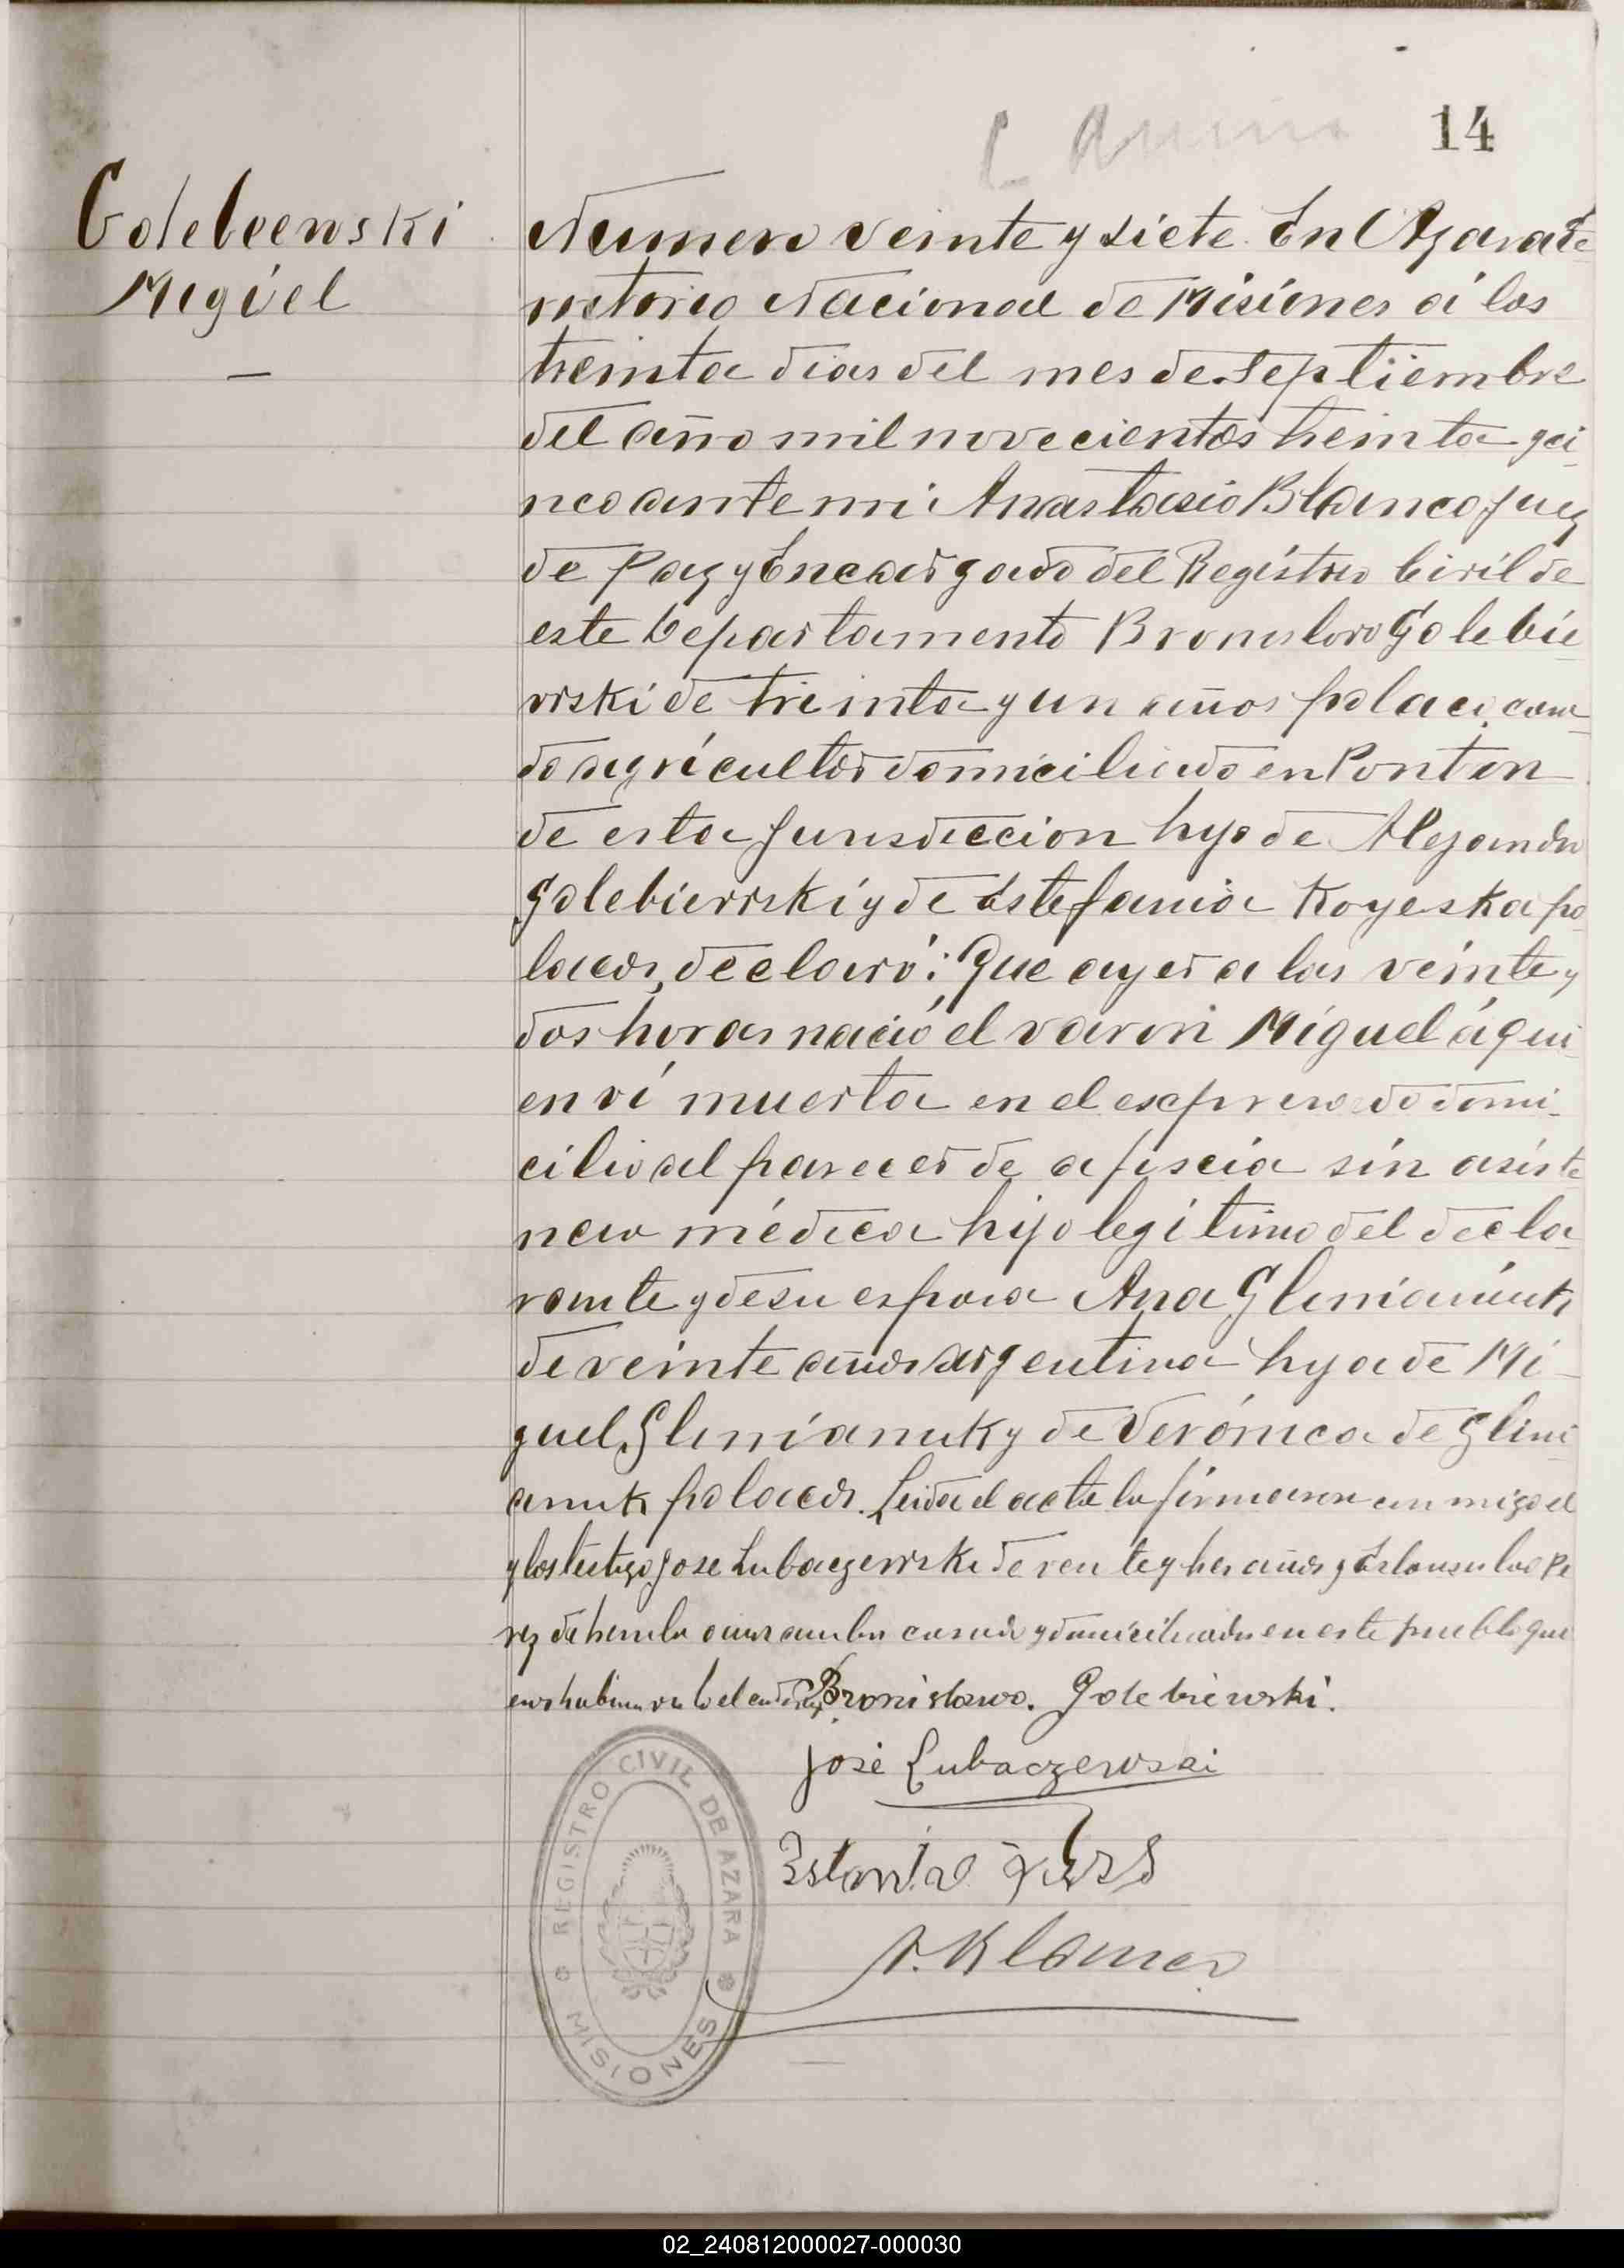 14
Golebiewski
Miguel
Numero veinte y siete. En Azara Te
rritorio Nacional de Misiones á los
treinta dias del mes de Septiembre
del año mil novecientos treinta y ci
nco ante mi Anastasio Blanco Juez
de Paz y Encargado del Registro Civil de
este Departamento Bronislavo Golebie
wski de treinta y un años polaco, casa
do agricultor domiciliado en Ponton
de esta Jurisdiccion hijo de Alejandro
Golebiewski y de Estefania Koyeska po
lacos, declaró: Que ayer a las veinte y
dos horas nació el varon Miguel á qui
en ví muerta en el expresado domi-
cilio al parecer de afiscia sin asiste
ncia médica hijo legitimo del decla
rante y de su esposa Ana Glinianiuk
de veinte años argentina hija de Mi-
guel Glinianuk y de Verónica de Glini
anuk polacos. Leida el acta la firmaron conmigo el
y los testigo Jose Lubaczewski de veinte y tres años y Estanislao Pe
rez de treinta años ambos casados y domiciliados en este pueblo qui
enes habian visto el cadaver
Bronislawo. Golebiewski.
José Lubaczewski
REGISTRO CIVIL DE AZARA
MISIONES
02_240812000027-000030